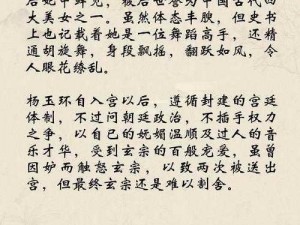 后妃中鲜见，被后世誉为中国古代四
大美女之一。虽然体态丰腴，但史书
上也记载着她是一位舞蹈高手，还精
通胡旋舞，身段飘摇，翻跃如风，令
人眼花缭乱。
杨玉环自入宫以后，遵循封建的宫廷
体制，不过问朝廷政治，不插手权力
之争，以自己的妩媚温顺及过人的音
乐才华，受到玄宗的百般宠爱，虽曾
因妒而触怒玄宗，以致两次被送出
宫，但最终玄宗还是难以割舍。